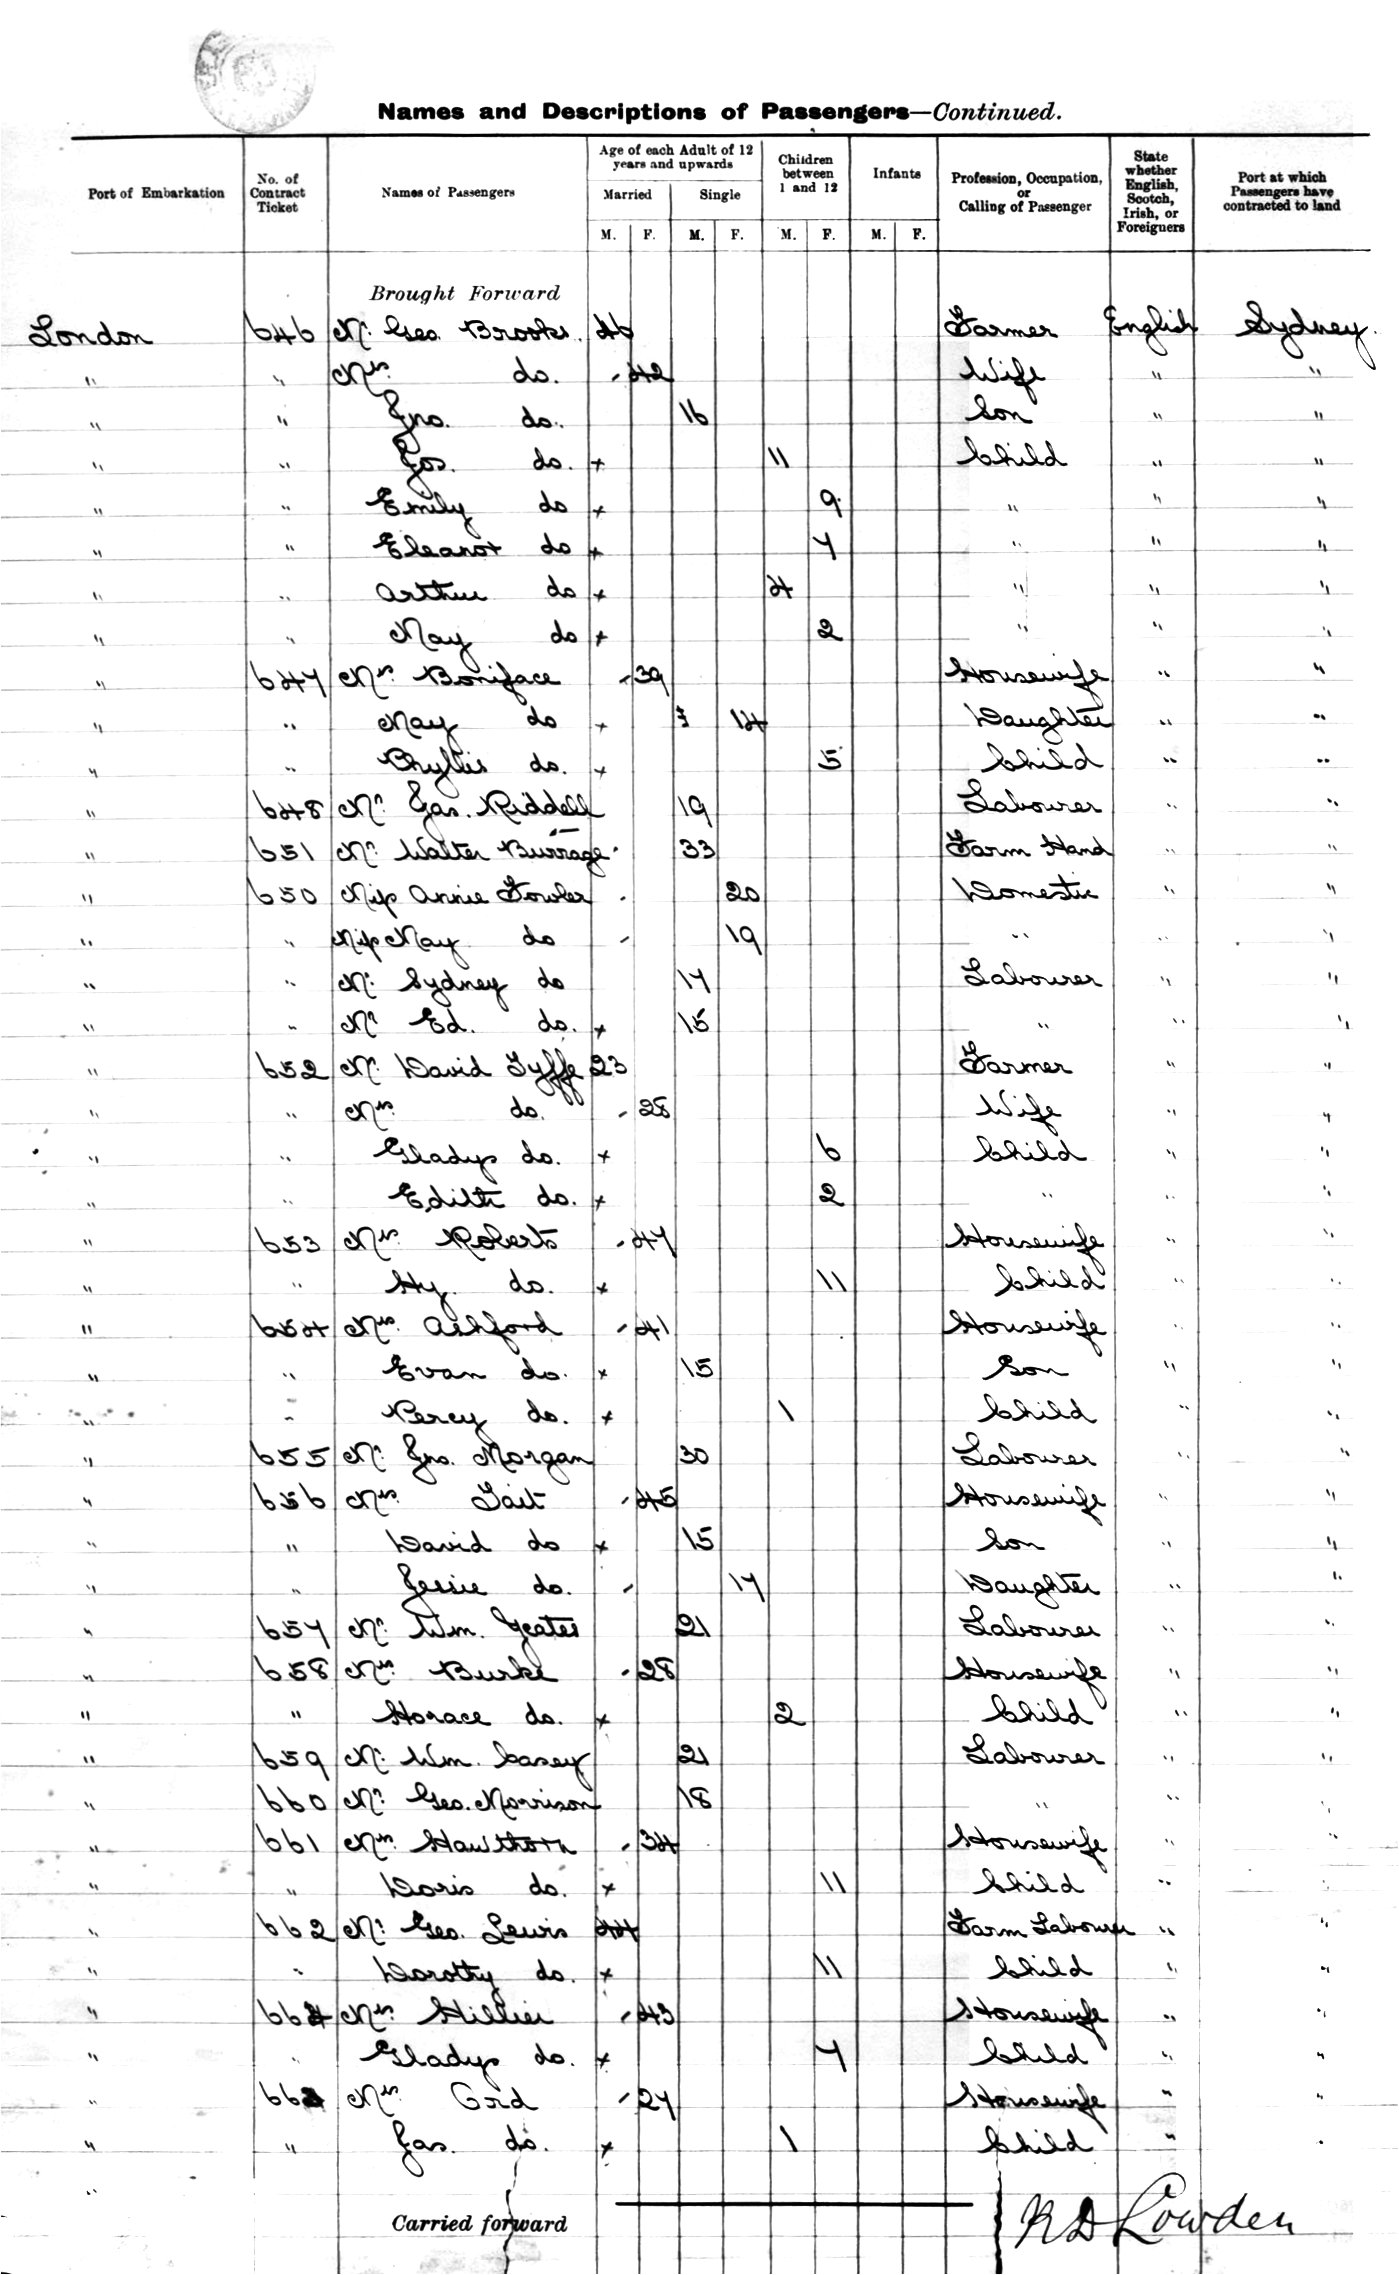 Names and Descriptions of Passengers—Continued.
Port of Embarkation | No. of Contract Ticket | Names of Passengers | Age of each Adult of 12 years and upwards | Children between 1 and 12 | Infants | Profession, Occupation, or Calling of Passenger | State whether English, Scotch, Irish, or Foreigners | Port at which Passengers have contracted to land
Married | Single
M. | F. | M. | F. | M. | F. | M. | F.
Brought Forward
London 646 Mr. Geo. Brooks. 46 Farmer English Sydney.
" " Mrs do. - 42 Wife " "
" " Jno. do. 16 Son " "
" " Jos. do. x 11 Child " "
" " Emily do x 9 " " "
" " Eleanor do x 7 " " "
" " Arthur do x 4 " " "
" " May do x 2 " " "
" 647 Mrs. Boniface - 39 Housewife " "
" " May do x 14 Daughter " "
" " Phyllis do. x 5 Child " "
" 648 Mr. Jas. Riddell 19 Labourer " "
" 651 Mr. Walter Burrage 33 Farm Hand " "
" 650 Miss Annie Fowler - 20 Domestic " "
" " Miss May do - 19 " " "
" " Mr. Sydney do 17 Labourer " "
" " Mr Ed. do. x 15 " " "
" 652 Mr. David Fyffe 23 Farmer " "
" " Mrs. do. - 28 Wife " "
" " Gladys do. x 6 Child " "
" " Edith do. x 2 " " "
" 653 Mrs. Roberts - 47 Housewife " "
" " Hy. do. x 11 Child " "
" 654 Mrs. Ashford - 41 Housewife " "
" " Evan do. x 15 Son " "
" " Percy do. x 1 Child " "
" 655 Mr. Jno. Morgan 30 Labourer " "
" 656 Mrs. Tait - 45 Housewife " "
" " David do x 15 Son " "
" " Jessie do. - 17 Daughter " "
" 657 Mr. Wm. Yeates 21 Labourer " "
" 658 Mrs. Burke - 28 Housewife " "
" " Horace do. x 2 Child " "
" 659 Mr. Wm. Casey 21 Labourer " "
" 660 Mr. Geo. Morrison 18 " " "
" 661 Mrs. Hawthorn - 34 Housewife " "
" " Doris do. x 11 Child " "
" 662 Mr. Geo. Lewis 44 Farm Labourer " "
" " Dorothy do. x 11 Child " "
" 664 Mrs Hillier - 43 Housewife " "
" " Gladys do. x 7 Child " "
" Mrs Ord - 27 Housewife " "
" " Jas. do. x 1 Child " "
"
Carried forward
R D Lowden